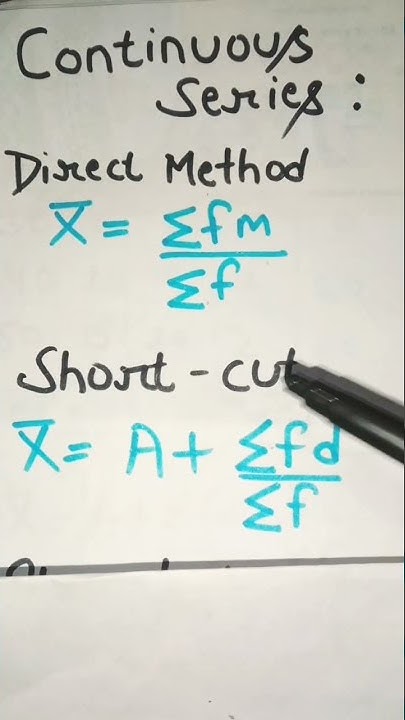 Continuous
Series :
Direct Method
X̅ = Σfm
Σf
Short-cut
X̅ = A + Σfd
Σf